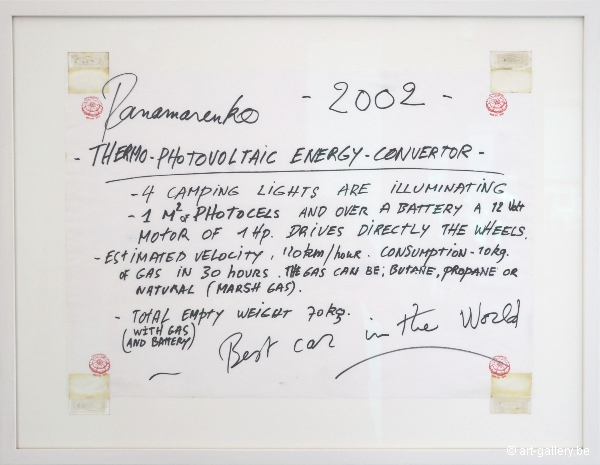 Panamarenko - 2002 -
- THERMO-PHOTOVOLTAIC ENERGY-CONVERTOR -
- 4 CAMPING LIGHTS ARE ILLUMINATING
- 1 M² of PHOTOCELS AND OVER A BATTERY A 12 Volt
MOTOR OF 1 Hp. DRIVES DIRECTLY THE WHEELS.
- ESTIMATED VELOCITY, 110 km/hour. CONSUMPTION - 10 kg.
OF GAS IN 30 HOURS. THE GAS CAN BE; BUTANE, PROPANE OR
NATURAL (MARSH GAS).
- TOTAL EMPTY WEIGHT 70 kg.
(WITH GAS)
(AND BATTERY)
Best car in the World
© art-gallery.be